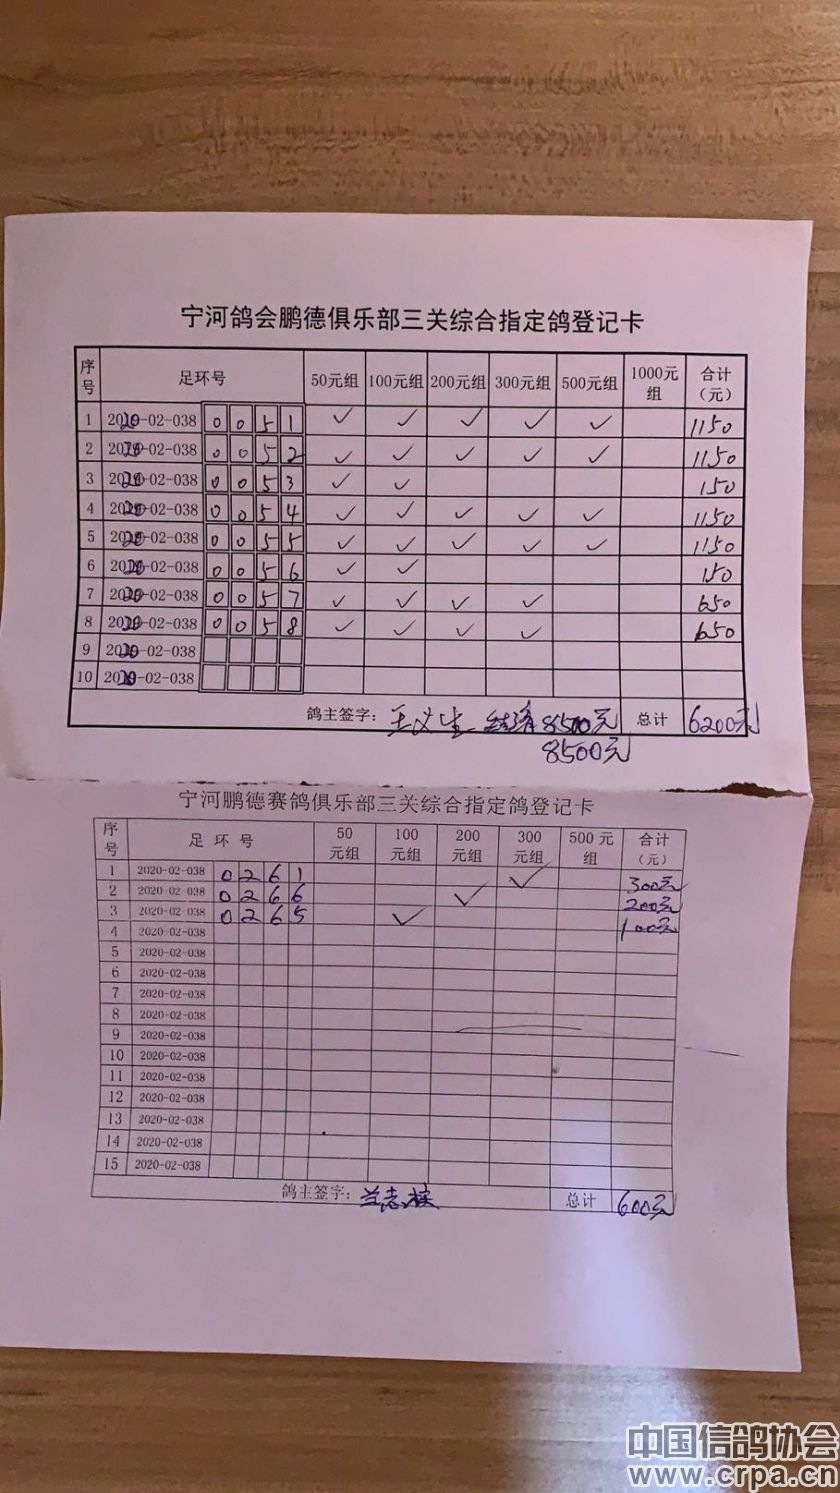 宁河鸽会鹏德俱乐部三关综合指定鸽登记卡
序号 足环号 50元组 100元组 200元组 300元组 500元组 1000元组 合计（元）
1 2020-02-038 0 0 5 1 ✓ ✓ ✓ ✓ ✓ 1150
2 2020-02-038 0 0 5 2 ✓ ✓ ✓ ✓ ✓ 1150
3 2020-02-038 0 0 5 3 ✓ ✓ 150
4 2020-02-038 0 0 5 4 ✓ ✓ ✓ ✓ ✓ 1150
5 2020-02-038 0 0 5 5 ✓ ✓ ✓ ✓ ✓ 1150
6 2020-02-038 0 0 5 6 ✓ ✓ 150
7 2020-02-038 0 0 5 7 ✓ ✓ ✓ ✓ 650
8 2020-02-038 0 0 5 8 ✓ ✓ ✓ ✓ 650
9 2020-02-038
10 2020-02-038
鸽主签字： 王 8500元 总计 6200元
8500元
宁河鹏德赛鸽俱乐部三关综合指定鸽登记卡
序号 足环号 50元组 100元组 200元组 300元组 500元组 合计（元）
1 2020-02-038 0 2 6 1 ✓ 300元
2 2020-02-038 0 2 6 6 ✓ 200元
3 2020-02-038 0 2 6 5 ✓ 100元
4 2020-02-038
5 2020-02-038
6 2020-02-038
7 2020-02-038
8 2020-02-038
9 2020-02-038
10 2020-02-038
11 2020-02-038
12 2020-02-038
13 2020-02-038
14 2020-02-038
15 2020-02-038
鸽主签字： 总计 600元
中国信鸽协会
www.crpa.cn